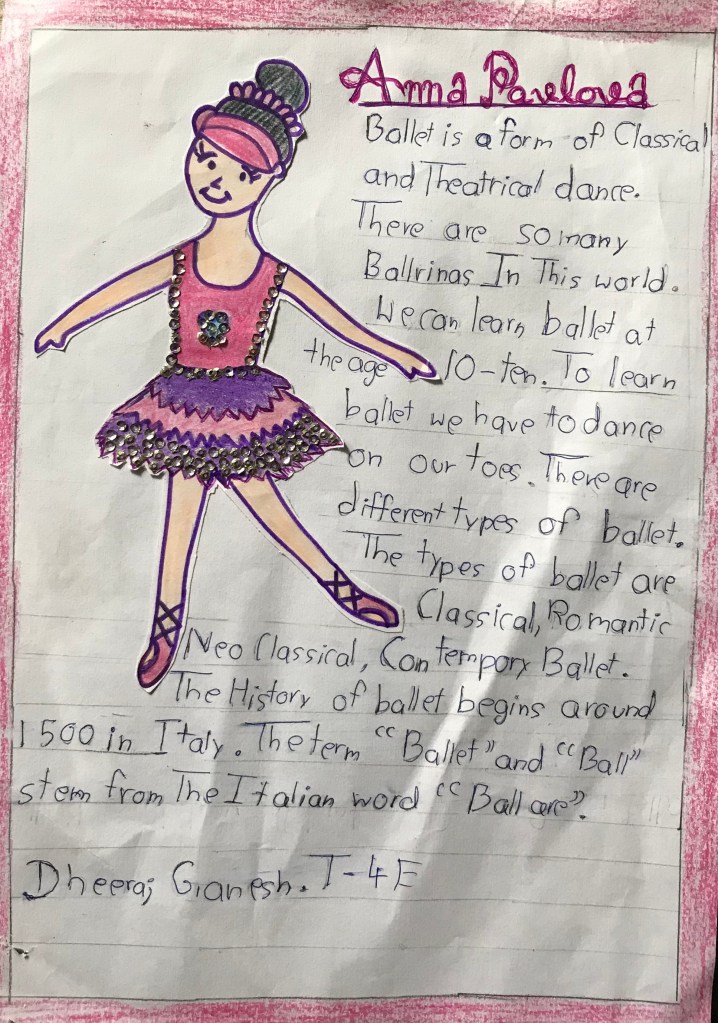 Anna Pavelova
Ballet is a form of Classical
and Theatrical dance.
There are so many
Ballrinas In This world.
We can learn ballet at
the age 10-ten. To learn
ballet we have to dance
on our toes. There are
different types of ballet.
The types of ballet are
Classical, Romantic
Neo Classical, Contempory Ballet.
The History of ballet begins around
1500 in Italy. The term "Ballet" and "Ball"
stem from The Italian word "Ball are".
Dheeraj Ganesh. T-4E